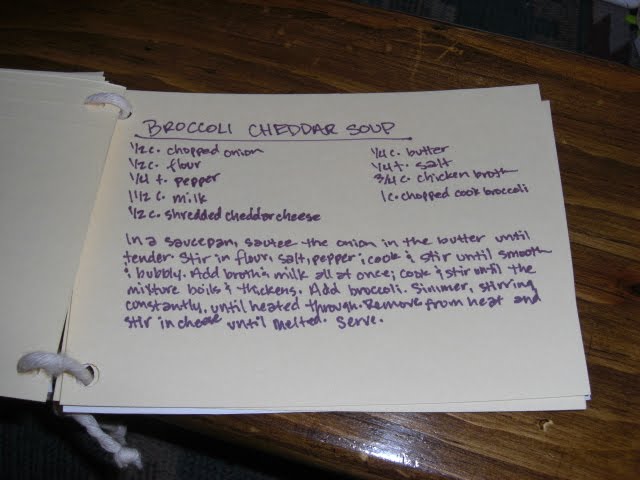 BROCCOLI CHEDDAR SOUP
1/2 c. chopped onion
1/2 c. flour
1/4 t. pepper
1 1/2 c. milk
1/2 c. shredded cheddar cheese
1/4 c. butter
1/4 t. salt
3/4 c. chicken broth
1 c. chopped cook broccoli
In a saucepan, sautee the onion in the butter until
tender. Stir in flour, salt, pepper; cook & stir until smooth
& bubbly. Add broth & milk all at once; cook & stir until the
mixture boils & thickens. Add broccoli. Simmer, stirring
constantly, until heated through. Remove from heat and
stir in cheese until melted. Serve.